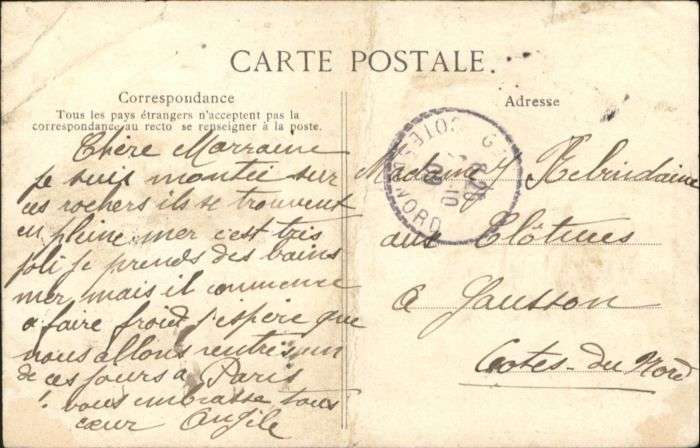 CARTE POSTALE
Correspondance
Tous les pays étrangers n'acceptent pas la
correspondance au recto se renseigner à la poste.
Chère Marraine
je suis montée sur
ces rochers ils se trouvent
en pleine mer c'est très
joli je prends des bains
mer, mais il commence
a faire froid j'espère que
nous allons rentrés un
de ces jours a Paris
! vous embrasse tous
cœur Angèle
Adresse
Madame
aux Clôtures
a Gausson
Cotes-du Nord
COTES
NORD